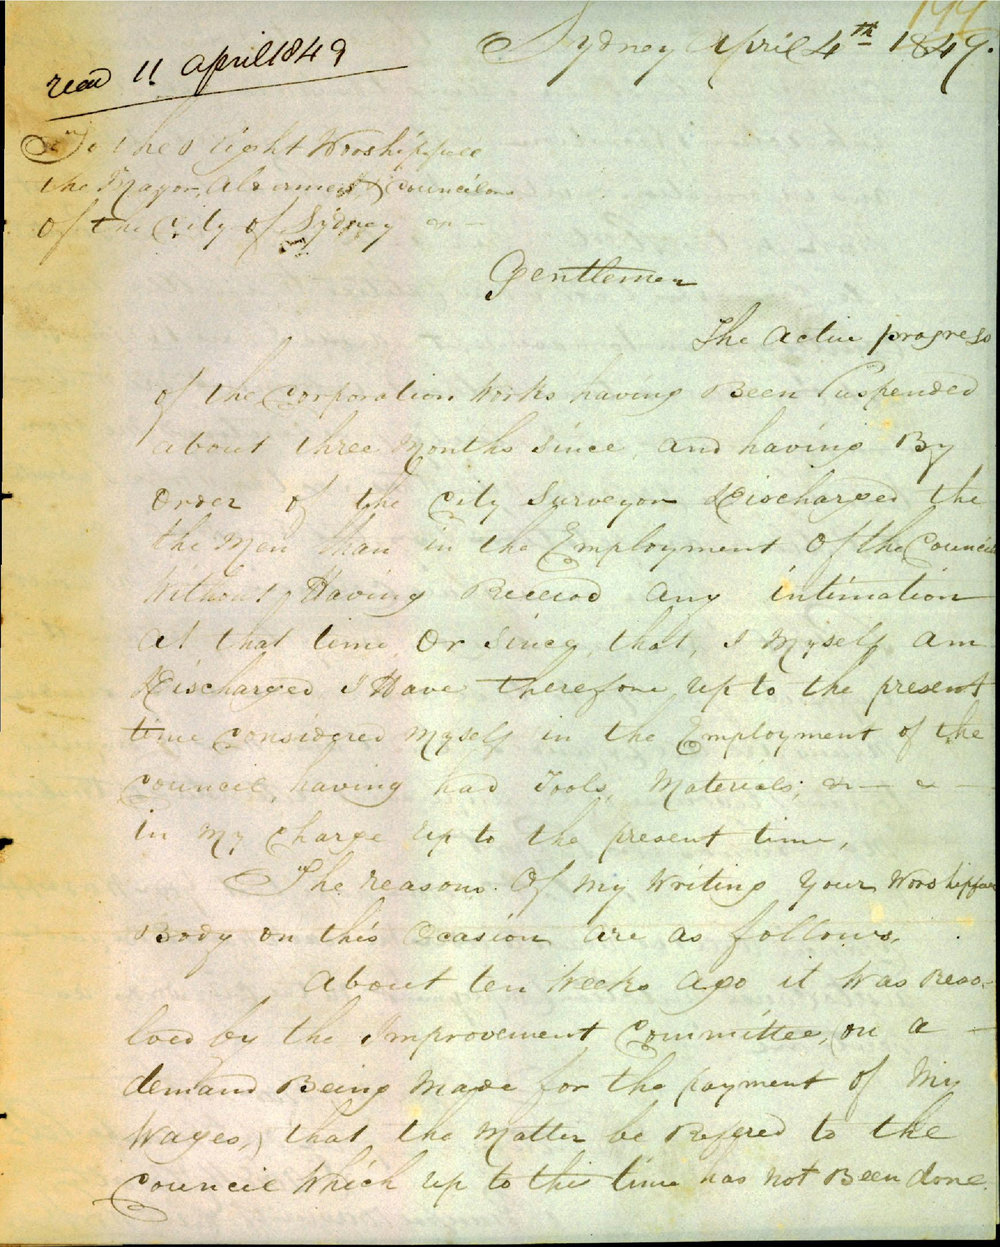 199
Sydney April 4th 1849.
read 11 april 1849
To the Right Worshipfull
the Mayor, Aldermen, & Councilors
of the City of Sydney &c —
Gentlemen
The active progress
of the Corporation Works having Been Suspended
about three Months Since and having By
Order of the City Surveyor Discharged the
the Men than in the Employment Of the Council
Without Having Received any intimation
At that time Or Since, that, I Myself am
Discharged, I Have therefore, up to the present
time Considered Myself in the Employment of the
Council, having had Tools, Materials, &c — &c —
in My Charge Up to the present time,
The reasons Of My Writing Your Worshipfull
Body on this Occasion are as follows.
About ten Weeks ago it Was reso-
lved by the Improvement Committee, (on a
demand Being Made for the payment of My
Wages,) that, the Matter be Reffered to the
Council Which up to this time has not Been done.